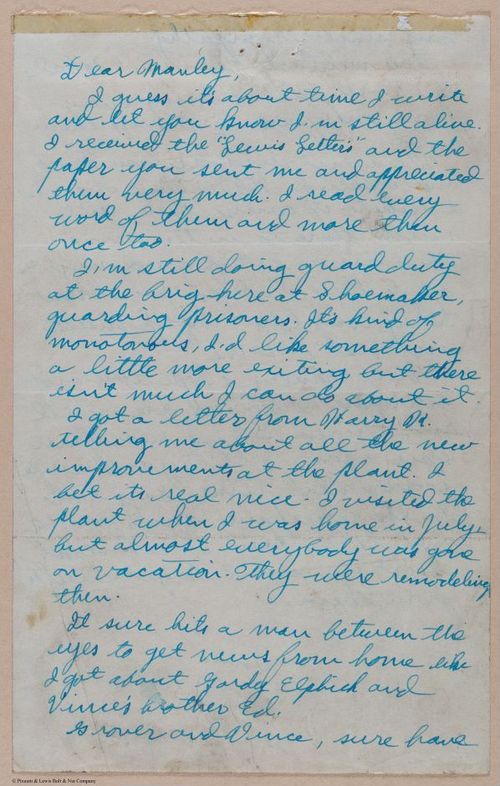 Dear Manley,
I guess it's about time I write
and let you know I'm still alive.
I received the "Lewis Letters" and the
paper you sent me and appreciated
them very much. I read every
word of them and more then
once too.
I'm still doing guard duty
at the brig here at Shoemaker,
guarding prisoners. It's kind of
monotonous, I'd like something
a little more exiting but there
isn't much I can do about it.
I got a letter from Harry K.
telling me about all the new
improvements at the plant. I
bet its real nice. I visited the
plant when I was home in July,
but almost everybody was gone
on vacation. They were remodeling
then.
It sure hits a man between the
eyes to get news from home like
I got about Gordy and
Vince's brother Ed.
Grover and Vince, sure have
© Pinants & Lewis Bolt & Nut Company